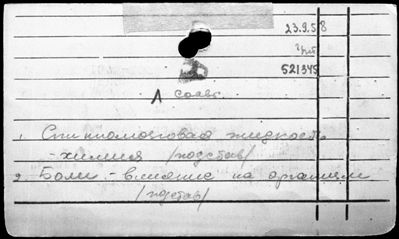 23.9.58
521345
1. Спинномозговая жидкость
- химия /подстав/
2. Боли - влияние на организм
/подстав/